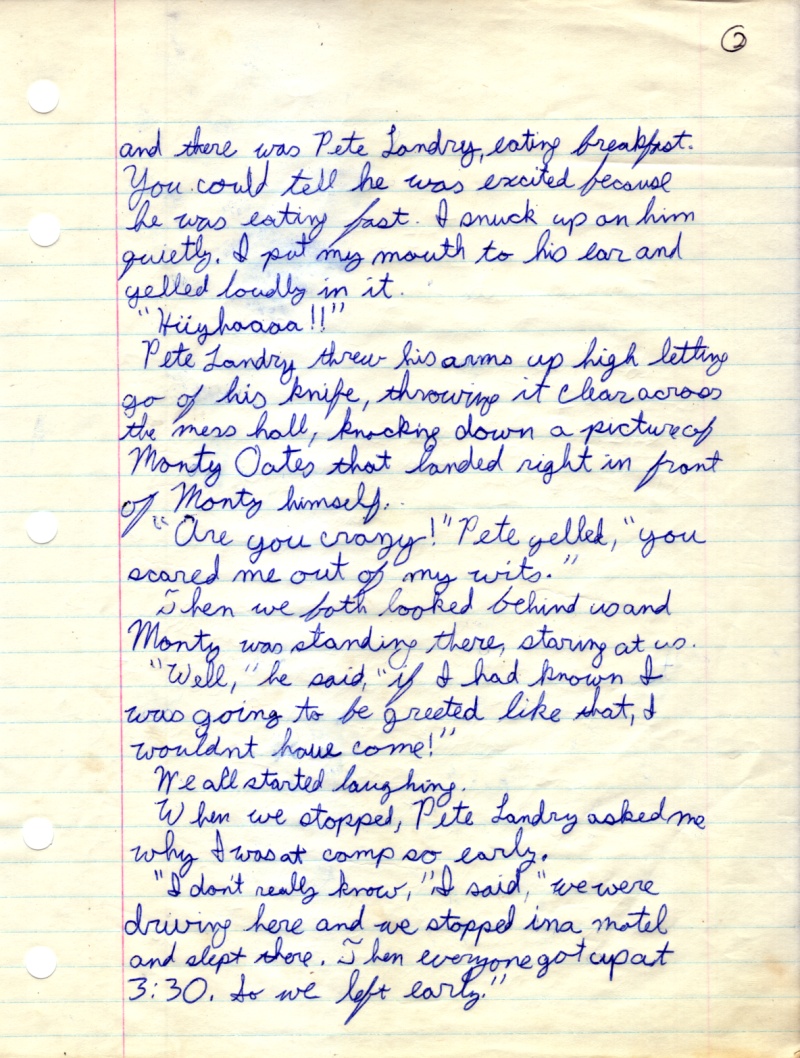 2
and there was Pete Landry, eating breakfast.
You could tell he was excited because
he was eating fast. I snuck up on him
quietly. I put my mouth to his ear and
yelled loudly in it.
"Hiiyhaaaa!!"
Pete Landry threw his arms up high letting
go of his knife, throwing it clear across
the mess hall, knocking down a picture of
Monty Oates that landed right in front
of Monty himself.
"Are you crazy!" Pete yelled, "you
scared me out of my wits."
Then we both looked behind us and
Monty was standing there, staring at us.
"Well," he said, "if I had known I
was going to be greeted like that, I
wouldnt have come!"
We all started laughing.
When we stopped, Pete Landry asked me
why I was at camp so early.
"I don't really know," I said, "we were
driving here and we stopped in a motel
and slept there. Then everyone got up at
3:30. So we left early."